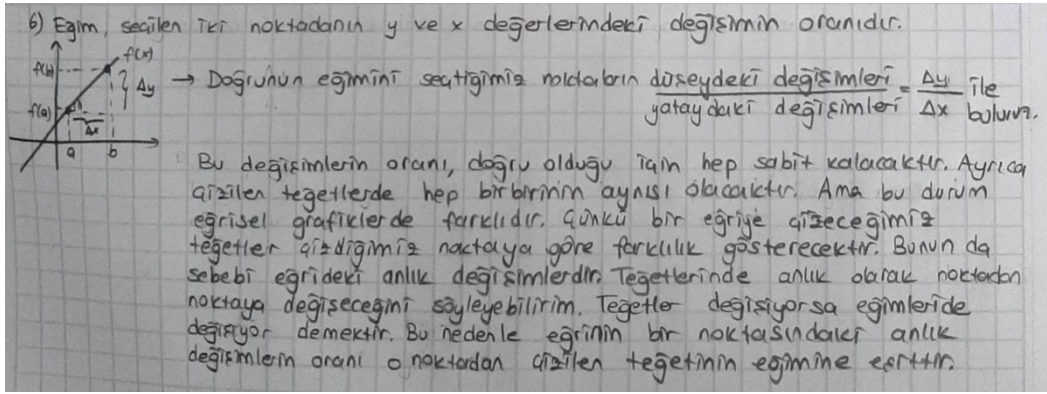 6) Eğim, seçilen iki noktadanın y ve x değerlerindeki değişimin oranıdır.
f(x)
f(b)
Δy
→ Doğrunun eğimini seçtiğimiz noktaların düşeydeki değişimleri = Δy ile
f(a)
Δx
yataydaki değişimleri Δx buluruz.
a b
Bu değişimlerin oranı, doğru olduğu için hep sabit kalacaktır. Ayrıca
çizilen tegetlerde hep birbirinin aynısı olacaktır. Ama bu durum
eğrisel grafiklerde farklıdır. Çünkü bir eğriye çizeceğimiz
teğetler çizdiğimiz noktaya göre farklılık gösterecektir. Bunun da
sebebi eğrideki anlık değişimlerdir. Teğetlerinde anlık olarak noktadan
noktaya değişeceğini söyleyebilirim. Teğetler değişiyorsa eğimleride
değişiyor demektir. Bu nedenle eğrinin bir noktasındaki anlık
değişimlerin oranı o noktadan çizilen teğetinin eğimine eşittir.